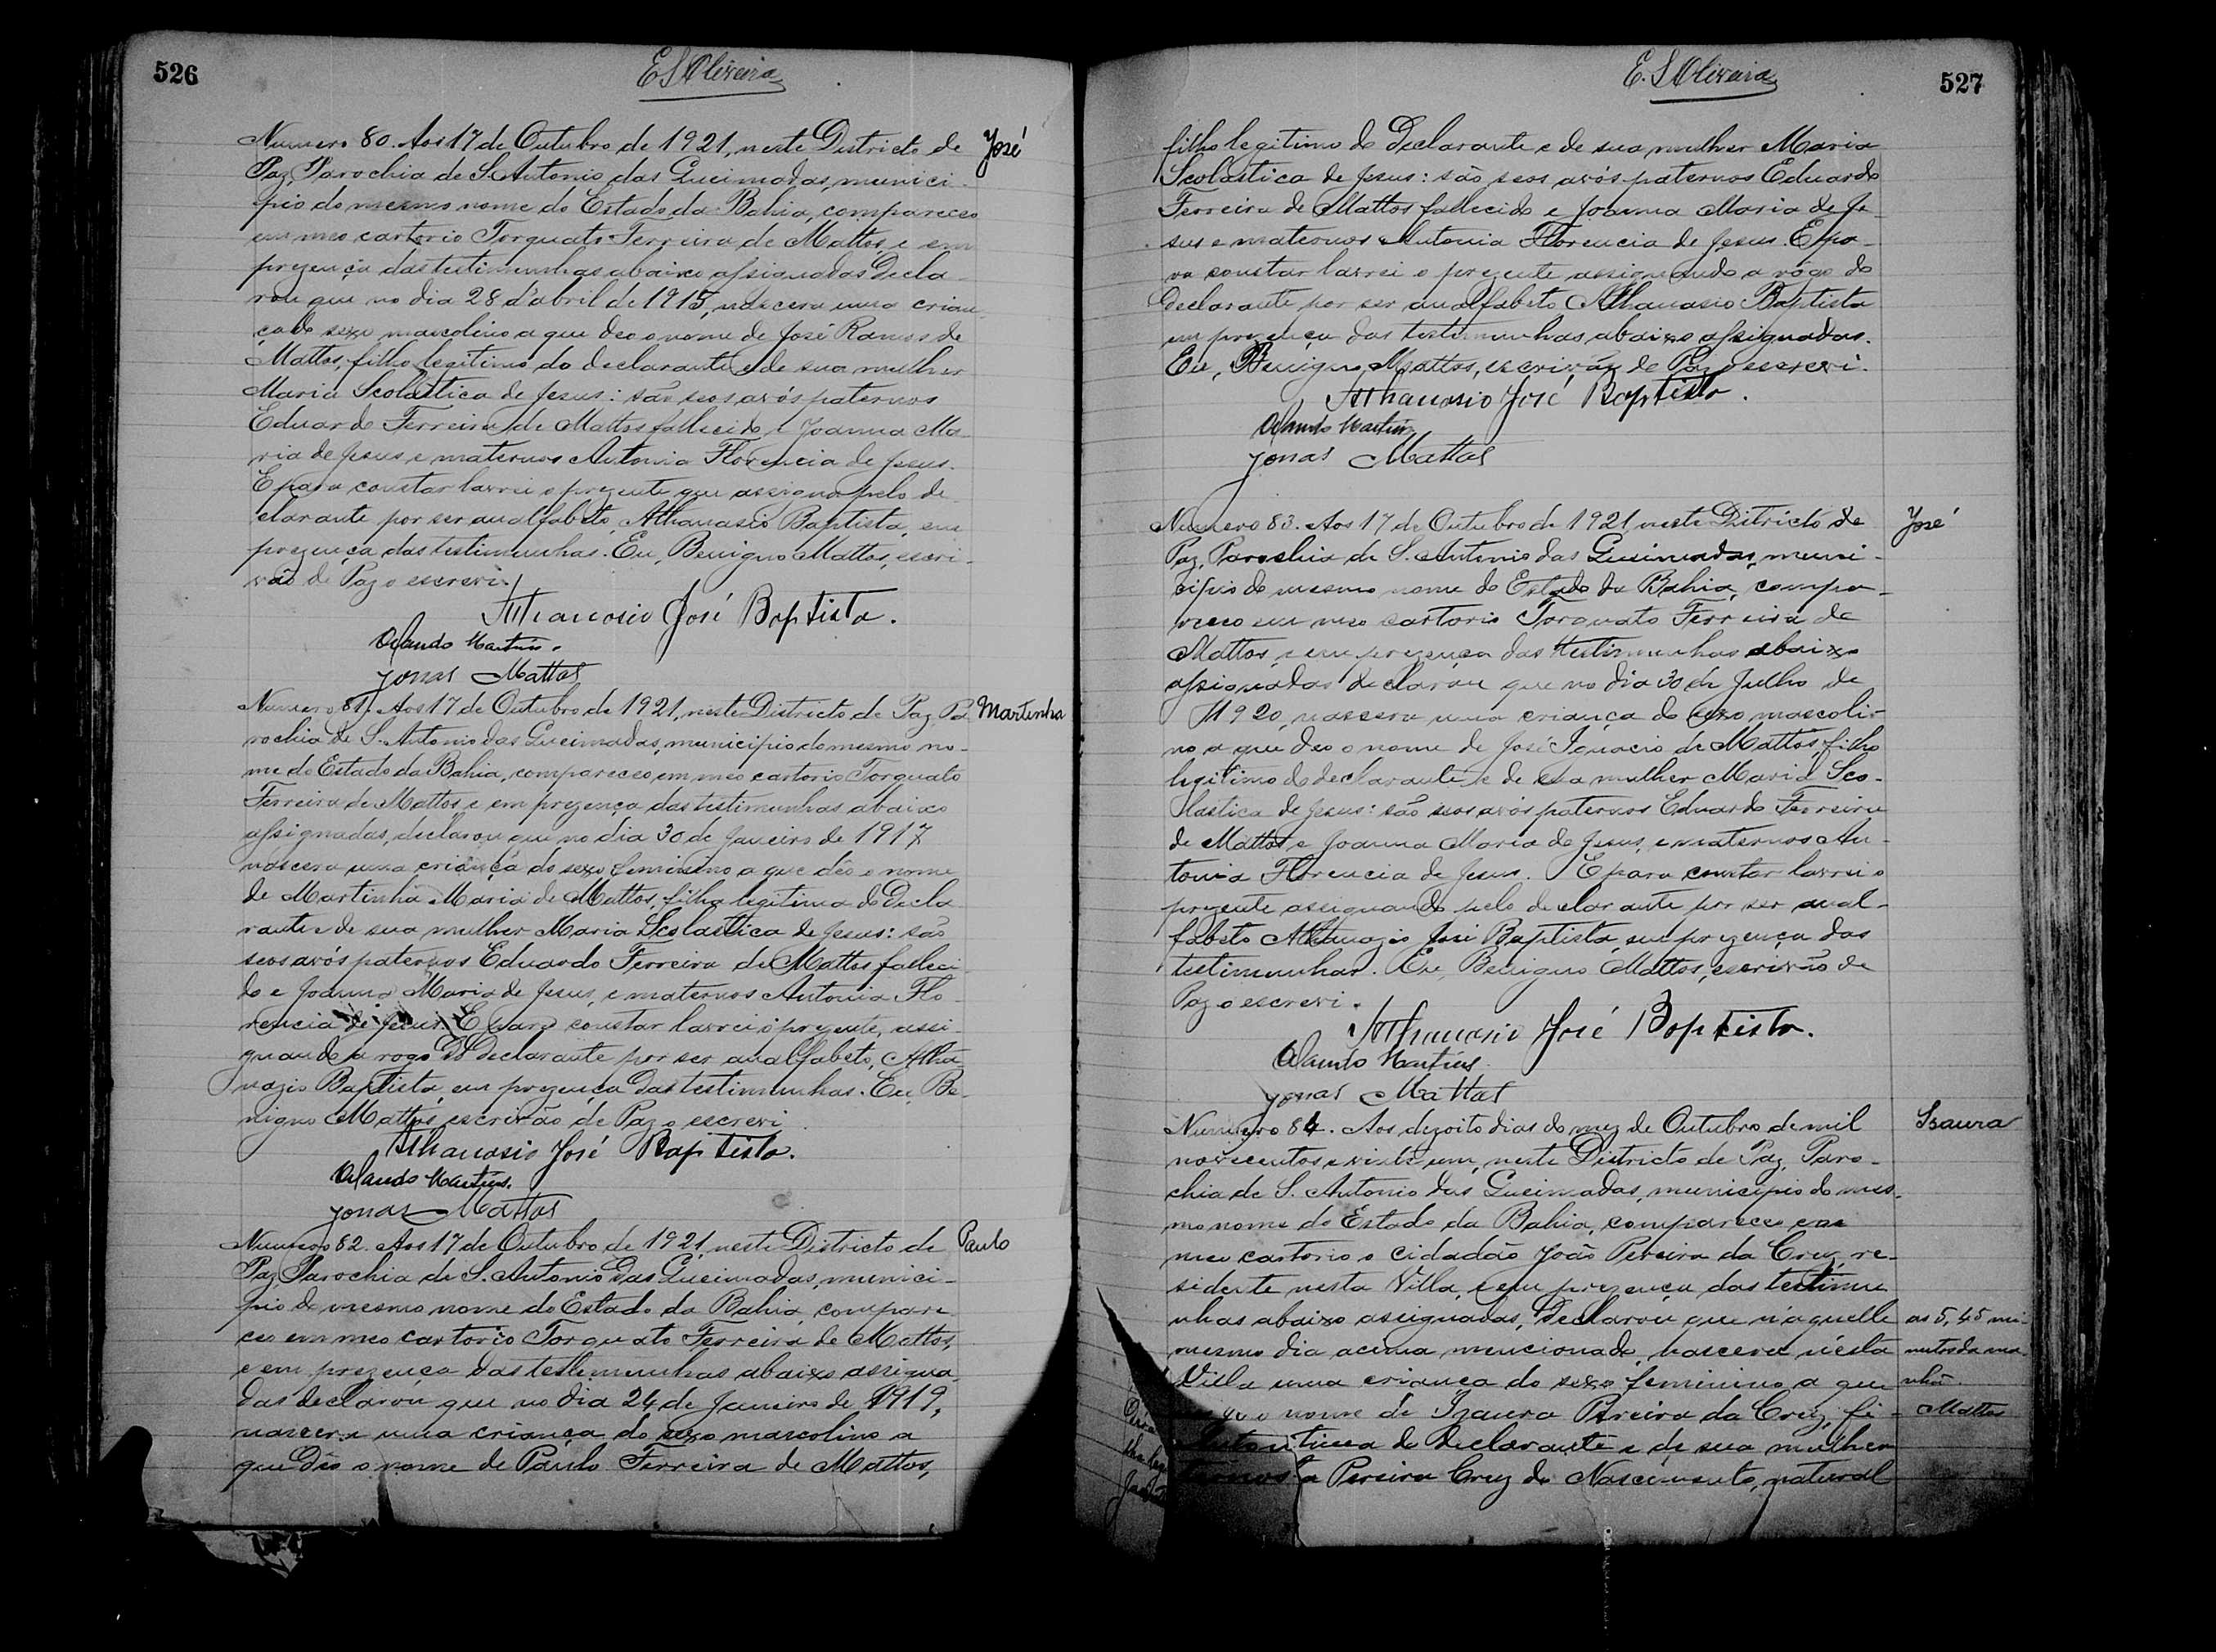 526
E S Oliveira
Numero 80. Aos 17 de Outubro de 1921, neste Districto de
José
Paz, Parochia de S. Antonio das Queimadas, munici-
pio do mesmo nome do Estado da Bahia, compareceo
em meo cartorio Torquato Ferreira de Mattos, e em
prezença das testimunhas abaixo assignadas decla-
rou que no dia 28 d'abril de 1915, nascera uma crian-
ça do sexo mascolino a que deo o nome de José Ramos de
Mattos, filho legitimo do declarante e de sua mulher
Maria Scolastica de Jesus: são seos avós paternos
Eduardo Ferreira de Mattos fallecido e Joanna Ma-
ria de Jesus e maternos Antonia Florencia de Jesus.
E para constar lavrei o prezente que assigna pelo de-
clarante por ser analfabeto, Athanasio Baptista, em
prezença das testimunhas. Eu, Benigno Mattos, escri-
vão de Paz o escrevi.
Athanasio José Baptista.
Orlando Martins.
Jonas Mattos
Numero 81. Aos 17 de Outubro de 1921, neste Districto de Paz, Pa-
Martinha
rochia de S. Antonio das Queimadas, municipio do mesmo no-
me do Estado da Bahia, compareceo em meo cartorio Torquato
Ferreira de Mattos e em prezença das testimunhas abaixo
assignadas, declarou que no dia 30 de Janeiro de 1917
nascera uma criança do sexo feminino a que deo o nome
de Martinha Maria de Mattos, filha legitima do Decla-
rante e de sua mulher Maria Scolastica de Jesus: são
seos avós paternos Eduardo Ferreira de Mattos falleci-
do e Joanna Maria de Jesus, e maternos Antonia Flo-
rencia de Jesus. E para constar lavrei o prezente, assi-
gnando a rogo do Declarante por ser analfabeto, Atha-
nazio Baptista, em prezença das testimunhas. Eu, Be-
nigno Mattos, escrivão de Paz o escrevi
Athanasio José Baptista.
Orlando Martins.
Jonas Mattos
Numero 82. Aos 17 de Outubro de 1921, neste Districto de
Paulo
Paz, Parochia de S. Antonio das Queimadas, munici-
pio do mesmo nome do Estado da Bahia, compare-
ceo em meo cartorio Torquato Ferreira de Mattos,
e em prezença das testemunhas abaixo assigna-
das declarou que no dia 24 de Janeiro de 1919,
nascera uma criança do sexo mascolino a
que deo o nome de Paulo Ferreira de Mattos,
E. S Oliveira
527
filho legitimo do Declarante e de sua mulher Maria
Scolastica de Jesus: são seos avós paternos Eduardo
Ferreira de Mattos fallecido e Joanna Maria de Je-
sus e maternos Antonia Florencia de Jesus. E pa-
ra constar lavrei o prezente assignando a rôgo do
Declarante por ser analfabeto Athanasio Baptista
em prezença das testimunhas abaixo assignadas.
Eu, Benigno Mattos, escrivão de Paz o escrevi.
Athanasio José Baptista.
Orlando Martins
Jonas Mattos
Numero 83. Aos 17 de Outubro de 1921 neste Districto de
José
Paz, Parochia de S. Antonio das Queimadas, muni-
cipio do mesmo nome do Estado da Bahia, compa-
receo em meo cartorio Torquato Ferreira de
Mattos, e em prezença das testimunhas abaixo
assignadas declarou que no dia 30 de Julho de
1920, nascera uma criança do sexo mascoli-
no a que deo o nome de José Ignacio de Mattos, filho
legitimo do declarante e de sua mulher Maria Sco-
lastica de Jesus: são seos avós paternos Eduardo Ferreira
de Mattos e Joanna Maria de Jesus, e maternos An-
tonia Florencia de Jesus. E para constar lavrei o
prezente assignando pelo declarante por ser anal-
fabeto Athanazio José Baptista, em prezença das
testimunhas. Eu, Benigno Mattos, escrivão de
Paz o escrevi.
Athanasio José Baptista.
Orlando Martins.
Jonas Mattos
Numero 84. Aos dezoito dias do mez de Outubro de mil
Isaura
novecentos e vinte um, neste Districto de Paz, Paro-
chia de S. Antonio das Queimadas, municipio do mes-
mo nome do Estado da Bahia, compareceo em
meu cartorio o cidadão João Pereira da Cruz, re-
sidente nesta Villa, e em prezença das testimu-
nhas abaixo assignadas, Declarou que n'aquelle
as 5,45 mi-
mesmo dia acima mencionado, nascera nésta
nutos da ma-
Villa uma criança do sexo feminino a que
nhã.
o nome de Izaura Pereira da Cruz, fi-
Mattos
do Declarante e de sua mulher
Pereira Cruz do Nascimento, natural